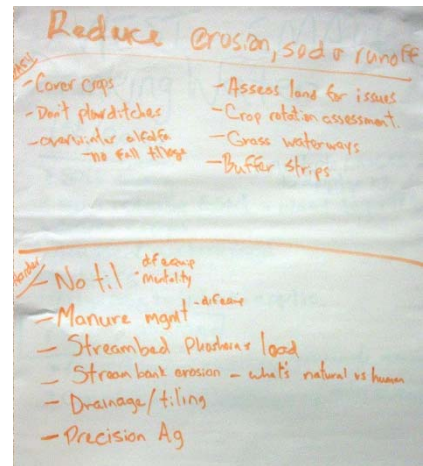 Reduce erosion, sed & runoff
- Cover crops
- Don't plow ditches
- overwinter alfalfa
- no fall tillage
- Assess land for issues
- Crop rotation assessment.
- Grass waterways
- Buffer strips
Harder
- No til
mentality
- Manure mgmt
- Streambed Phosphorus load
- Stream bank erosion - what's natural vs human
- Drainage/tiling
- Precision Ag